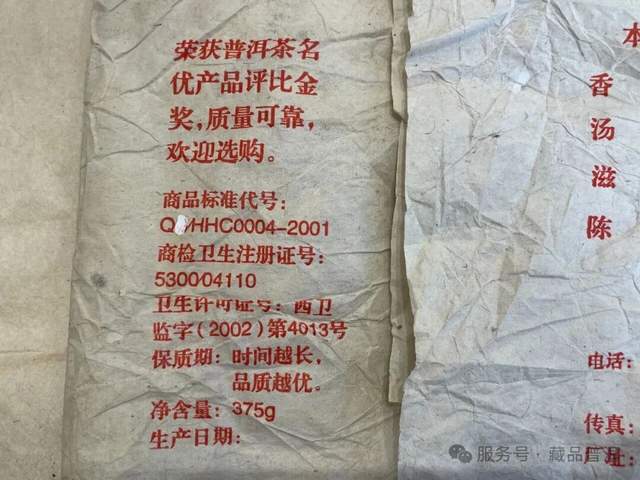 荣获普洱茶名
优产品评比金
奖，质量可靠，
欢迎选购。
商品标准代号：
Q/HHC0004-2001
商检卫生注册证号：
530004110
卫生许可证号：西卫
监字（2002）第4013号
保质期：时间越长，
品质越优。
净含量：375g
生产日期：
本
香
汤
滋
陈
电话：
传真：
厂址：
服务号·藏品普洱